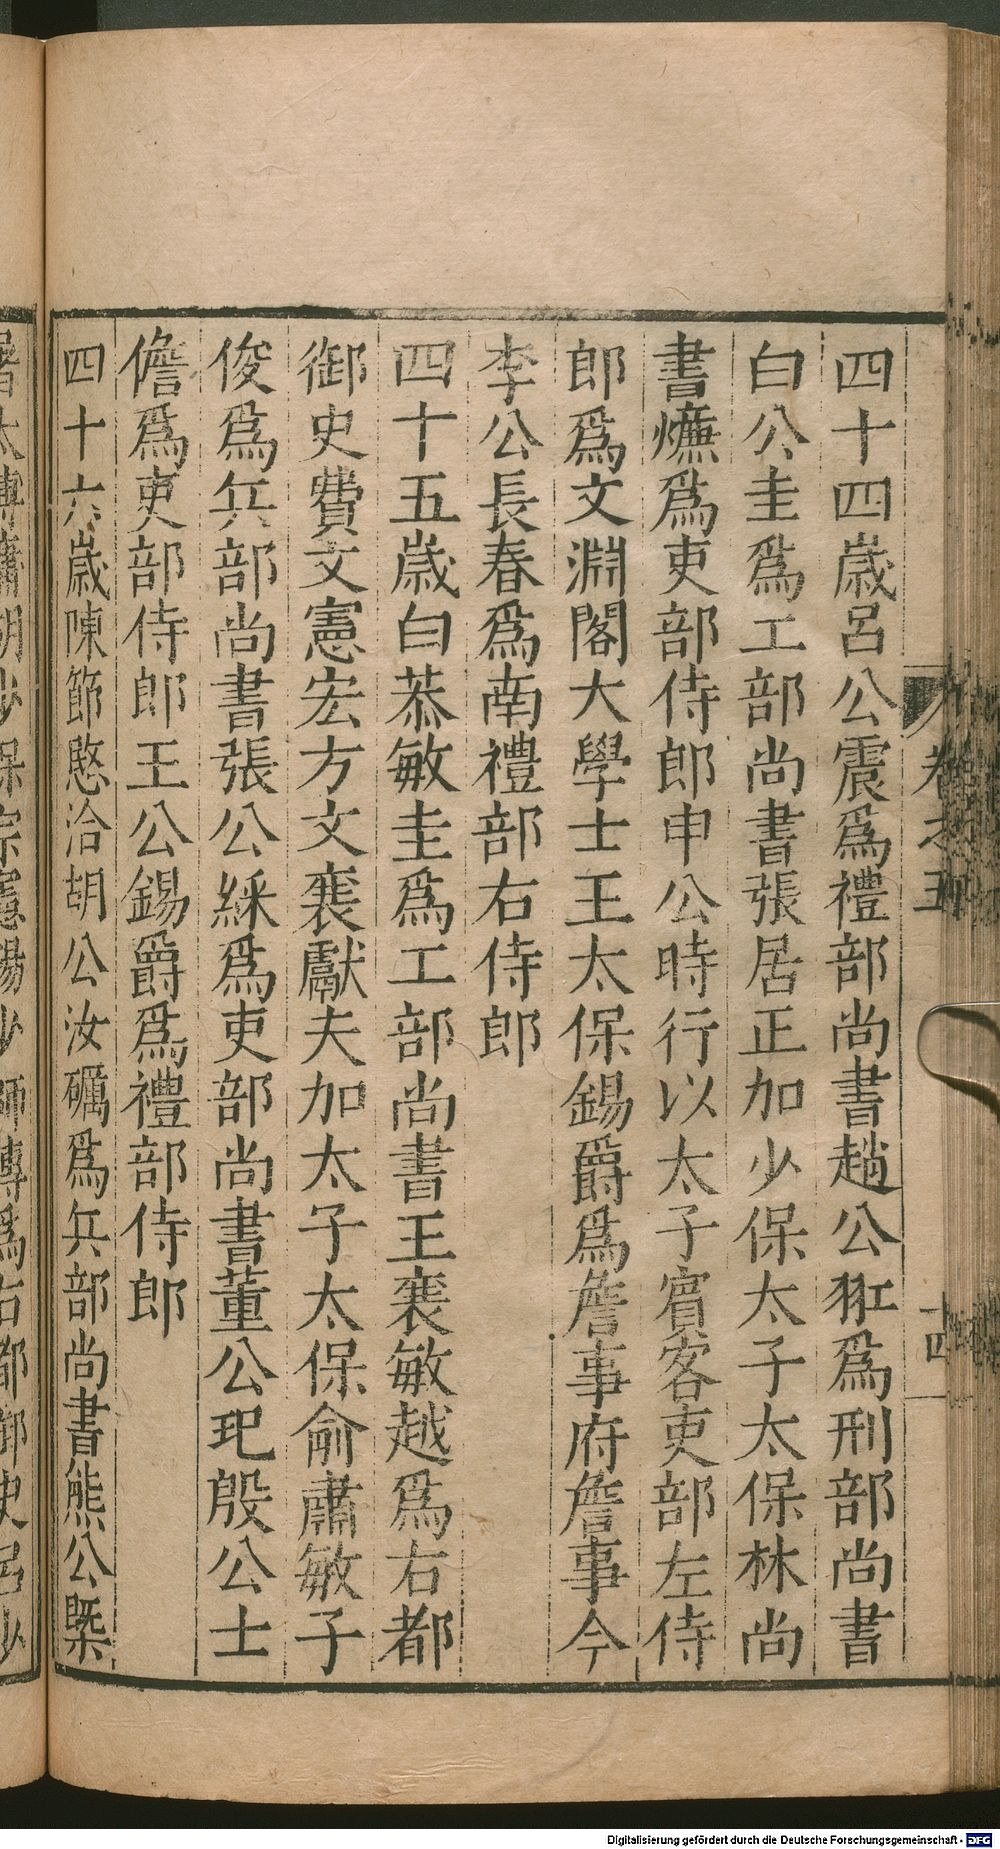 四十四歲呂公震爲禮部尚書趙公羾爲刑部尚書
白公圭爲工部尚書張居正加少保太子太保林尚
書㷆爲吏部侍郎申公時行以太子賓客吏部左侍
郎爲文淵閣大學士王太保錫爵爲詹事府詹事今
李公長春爲南禮部右侍郎
四十五歲白恭敏圭爲工部尚書王襄敏越爲右都
御史費文憲宏方文襄獻夫加太子太保俞肅敏子
俊爲兵部尚書張公綵爲吏部尚書董公玘殷公士
儋爲吏部侍郎王公錫爵爲禮部侍郎
四十六歲陳節愍洽胡公汝礪爲兵部尚書熊公槩
卷之五
十四
太傅
胡少保宗憲楊少師博爲右都御史呂少
Digitalisierung gefördert durch die Deutsche Forschungsgemeinschaft - DFG